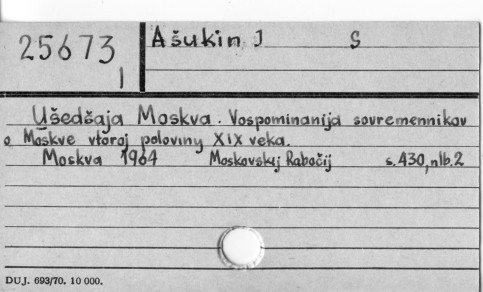 25673 Ašukin I S
I
Ušedšaja Moskva. Vospominanija sovremennikov
o Moskve vtoroj poloviny XIX veka.
Moskva 1964 Moskovskij Rabočij s. 430, nlb. 2
DUJ. 693/70. 10 000.